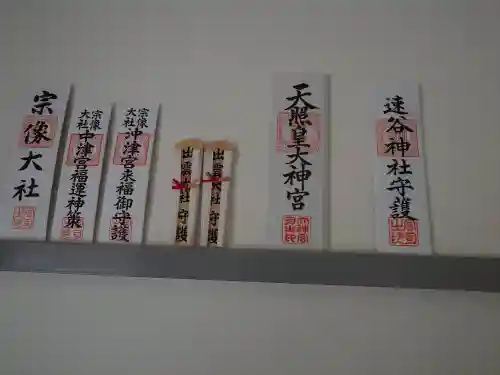 宗像大社
宗像
大社
中津宮福運神策
宗像
大社
沖津宮来福御守護
出雲大社守護
出雲大社守護
天照皇大神宮
速谷神社守護